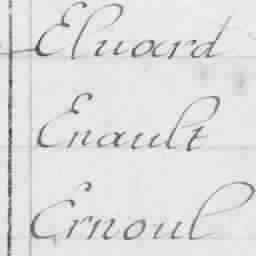 Eluard
Enault
Ernoul